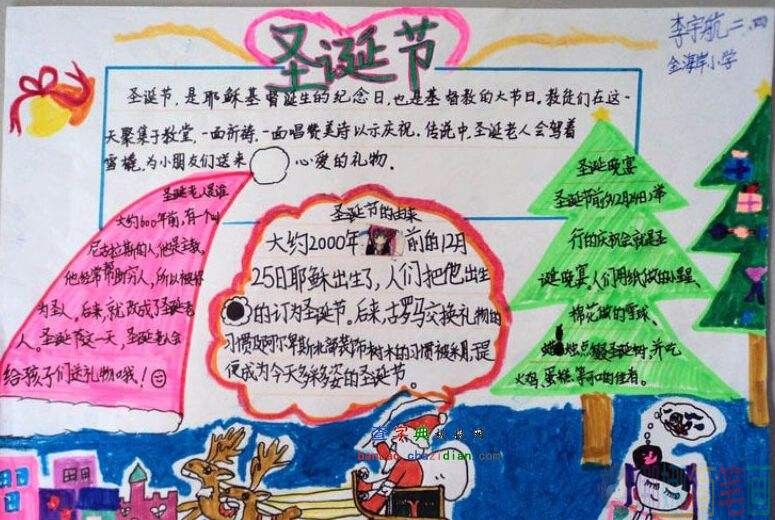 圣诞节
李宇航 二、四
金海岸小学
圣诞节，是耶稣基督诞生的纪念日，也是基督教的大节日。教徒们在这一
天聚集于教堂，一面祈祷，一面唱赞美诗以示庆祝。传说中，圣诞老人会驾着
雪橇，为小朋友们送来 心爱的礼物。
圣诞老人是谁
大约600年前，有个叫
尼古拉斯的人，他是主教，
他经常帮助穷人，所以被称
为圣人，后来，就改成了圣诞老
人。圣诞节这一天，圣诞老人会
给孩子们送礼物哦！
圣诞节的由来
大约2000年 前的12月
25日耶稣出生了，人们把他出生
的 订为圣诞节。后来，古罗马交换礼物的
习惯及阿尔卑斯 装饰树木的习惯被采用，
便成为今天多彩多姿的圣诞节。
圣诞晚宴
圣诞节前夕12月24日举
行的庆祝会就是圣
诞晚宴，人们用纸做的小星星、
棉花做的雪球、
蜡烛点缀圣诞树，并吃
火鸡、蛋糕、
查字典
chazidian.com